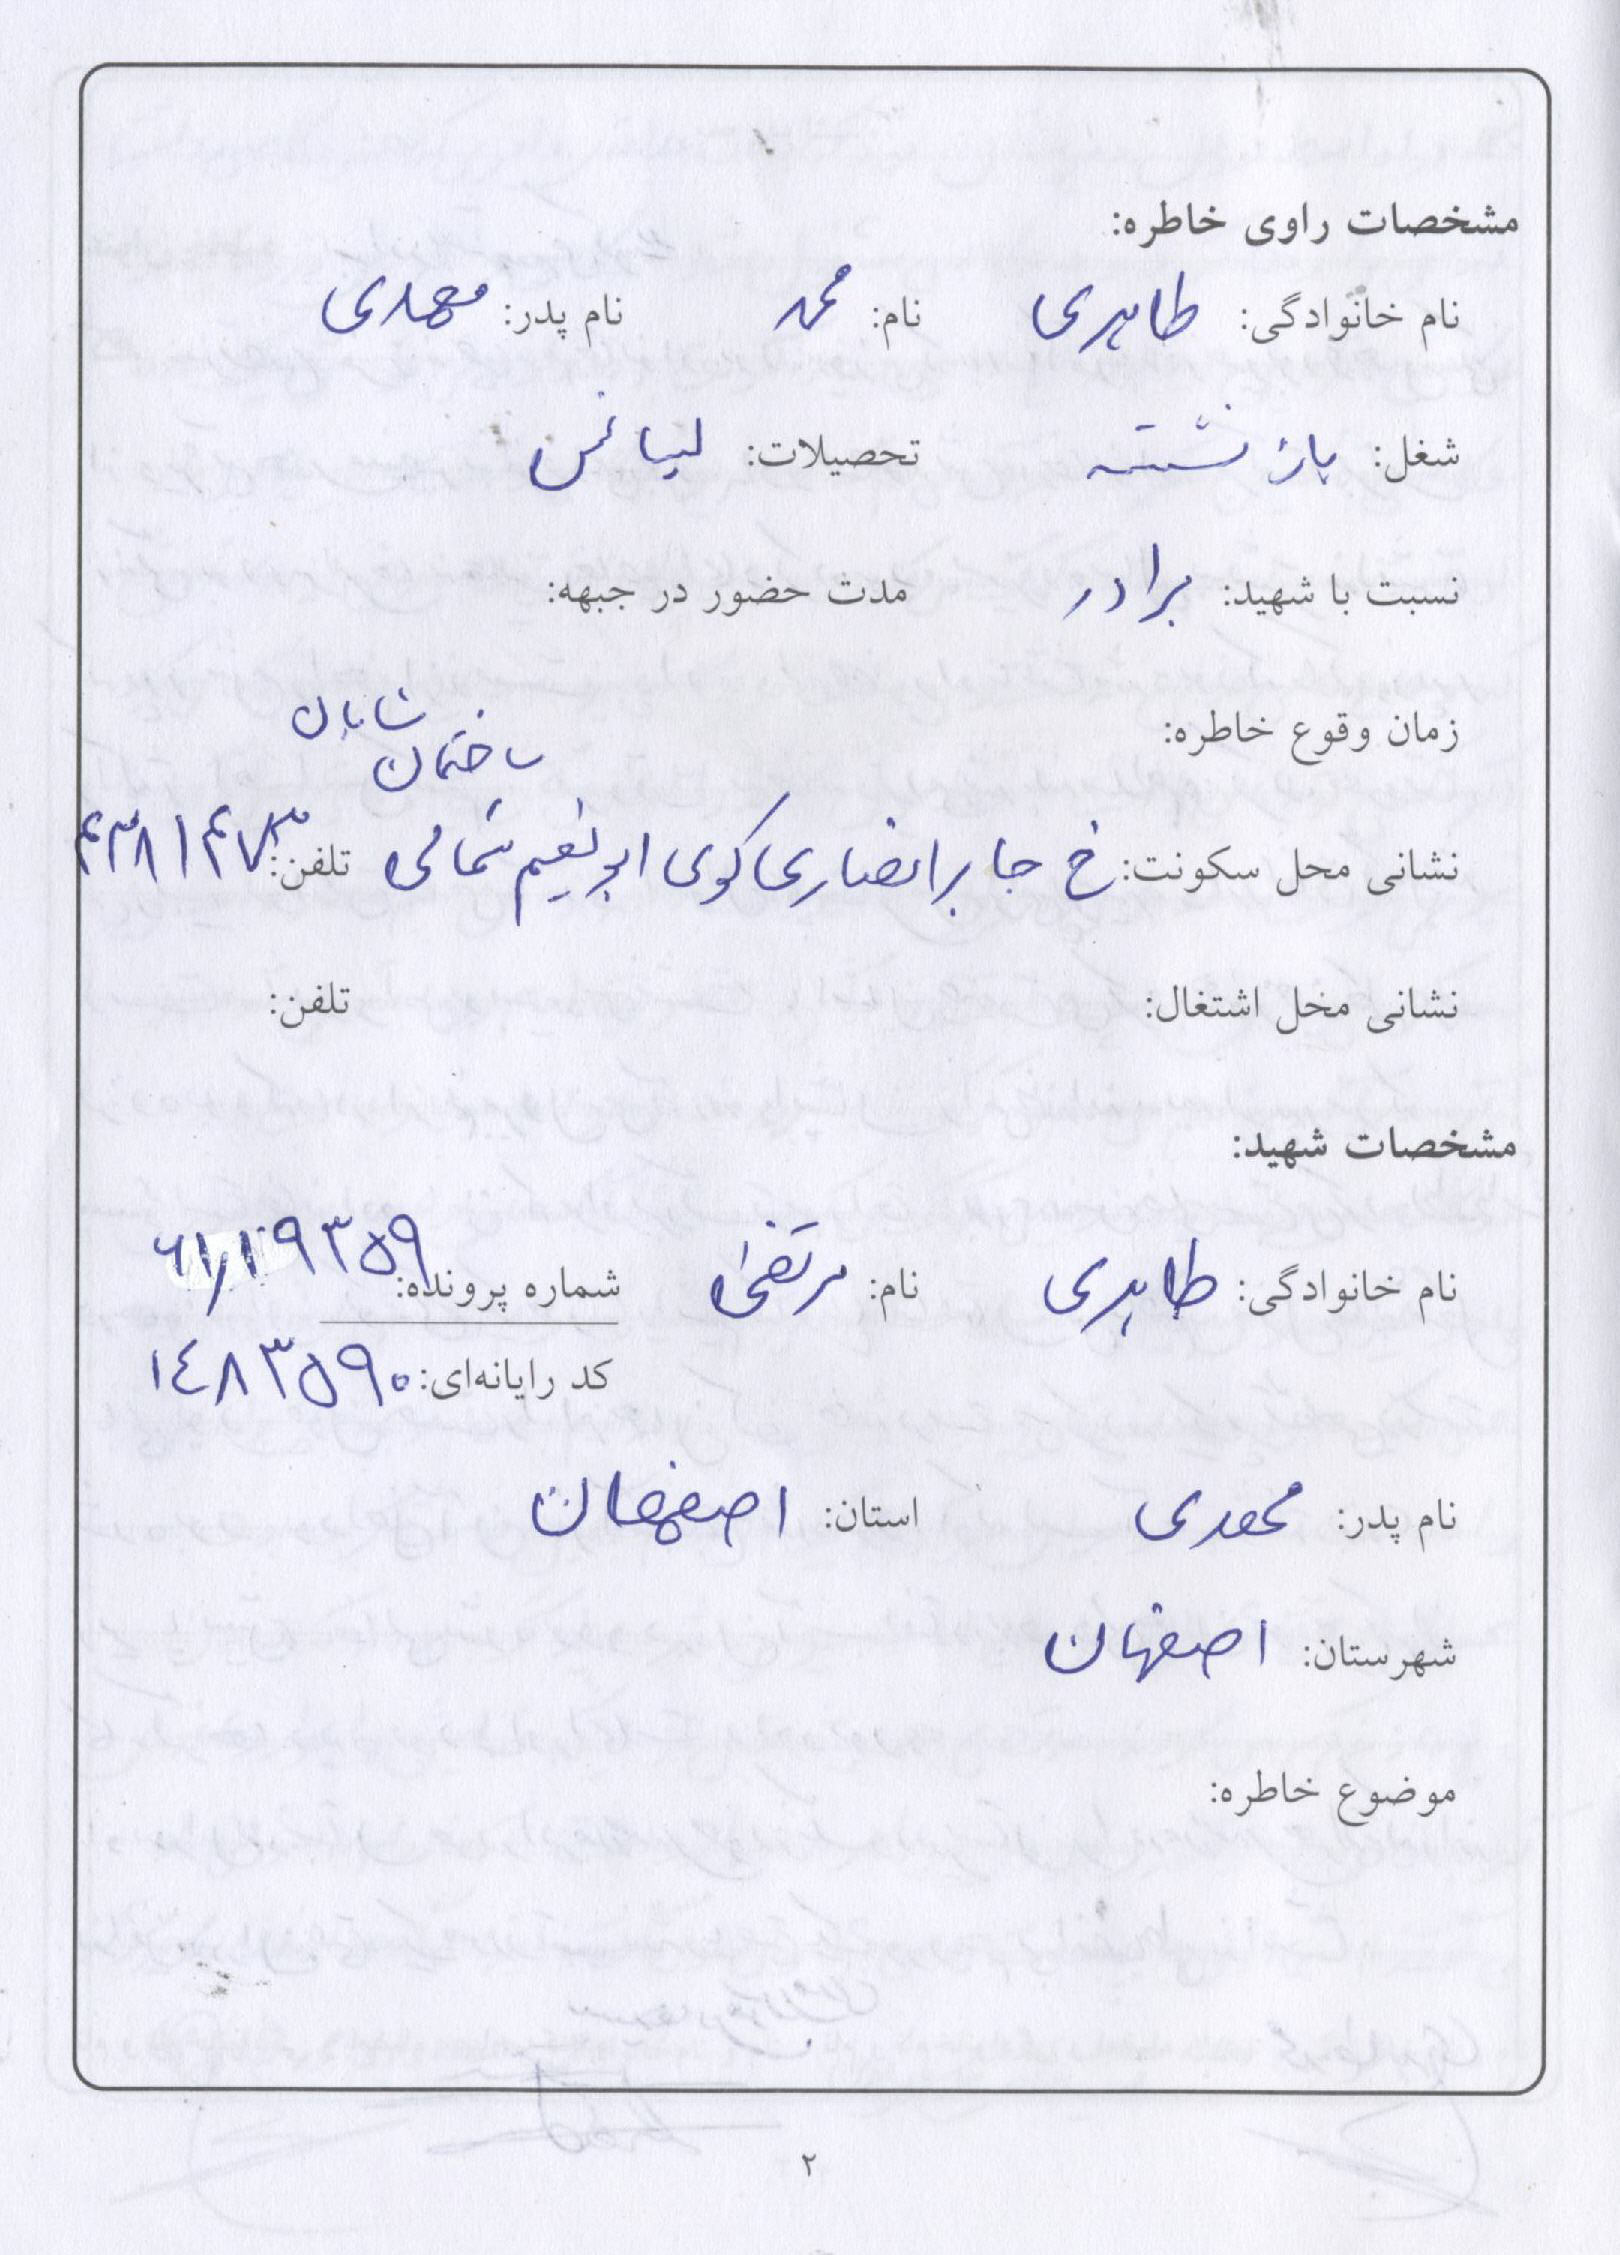 مشخصات راوی خاطره:
نام خانوادگی: طاهری نام: محمد نام پدر: مهدی
شغل: بازنشسته تحصیلات: لیسانس
نسبت با شهید: برادر مدت حضور در جبهه:
زمان وقوع خاطره:
ساختمان شایان
نشانی محل سکونت: خ جابر انصاری کوی ابونعیم شمالی تلفن: ۴۳۸۱۴۷۳
نشانی مخل اشتغال: تلفن:
مشخصات شهید:
نام خانوادگی: طاهری نام: مرتضی شماره پرونده: ۶۱/۱۰۹۳۵۹
کد رایانه‌ای: ۱۴۸۳۵۹۰
نام پدر: مهدی استان: اصفهان
شهرستان: اصفهان
موضوع خاطره:
۲